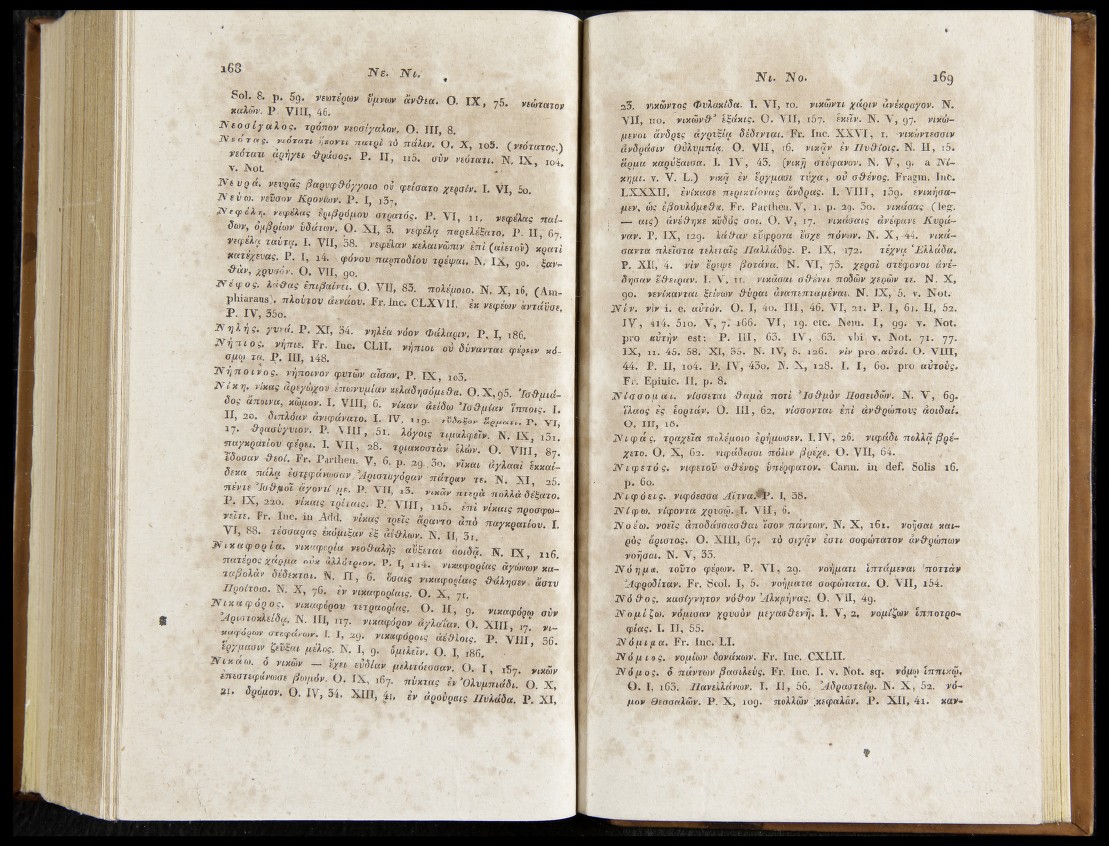 168 Νε. Νι.
Sol. 8. p. 59. νεωτέρων ὕμνων ἄνθεα. O. IX, 75. νεώτατον
καλῶν. P. VIII, 46.
Νεοσίγαλος. τρόπον νεοσίγαλον. O. III, 8.
Νεότας. νεότατι ἥκοντι πατρὶ τὸ πάλιν. O. X, 105. (νεότατος.)
νεότατι ἀρήγει θράσος. P. II, 115. σὺν νεότατι. N. IX, 104.
v. Not.
Νευρά. νευρᾶς βαρυφθόγγοιο οὐ φείσατο χερσίν. I. VI, 50.
Νεύω. νεῦσον Κρονίων. P. I, 137.
Νεφέλη. νεφέλας ἐριβρόμου στρατός. P. VI, 11. νεφέλας παί-
δων, ὀμβρίων ὑδάτων. O. XI, 3. νεφέλᾳ παρελέξατο. P. II, 67.
νεφέλᾳ ταύτᾳ. I. VII, 38. νεφέλαν κελαινῶπιν ἐπὶ (αἰετοῦ) κρατὶ
κατέχευας. P. I, 14. φόνου παρποδίου τρέψαι. N. IX, 90. ξαν-
θάν, χρυσόν. O. VII, 90.
Νέφος. λάθας ἐπιβαίνει. O. VII, 83. πολέμοιο. N. X, 16, (Am-
phiaraus). πλούτου ἀενάου. Fr. Inc. CLXVII. ἐκ νεφέων ἀντάϋσε,
P. IV, 350.
Νηλής. γυνά. P. XI, 34. νηλέα νόον Φάλαριν. P. I, 186.
Νήπιος. νήπιε. Fr. Inc. CLII. νήπιοι οὐ δύνανται φέρειν κό-
σμῳ τα. P. III, 148.
Νήποινος. νήποινον φυτῶν αἶσαν. P. IX, 103.
Νίκη. νίκας ἀγερώχου ἐπωνυμίαν κελαδησόμεθα. O. X, 95. Ἰσθμιά-
δος ἄποινα, κῶμον. I. VIII, 6. νίκαν ἀείδω Ἰσθμίαν ἵπποις. I.
II, 20. διπλόαν ἀνεφάνατο. I. IV, 119. εὔδοξον ἅρματι. P. VI,
17. θρασύγυιον. P. VIII, 51. λόγοις τιμαλφεῖν. N. IX, 131.
παγκρατίου φέρει. I. VII, 28. τριακοστὰν ἑλών. O. VIII, 87.
ἔδοσαν θεοί. Fr. Parthen. V, 6. p. 29. 30. νῖκαι ἀγλααὶ ἑκκαί-
δεκα πάλᾳ ἐστεφάνωσαν Ἀρισταγόραν πάτραν τε. N. XI, 25.
πέντε Ἰσθμοῖ ἄγοντί με. P. VII, 13. νικᾶν πτερὰ πολλὰ δέξατο.
P. IX, 220. νίκαις τρίταις. P. VIII, 115. ἐπὶ νίκαις προσφω-
νεῖτε. Fr. Inc. in Add. νίκας τρεῖς ἄραντο ἀπὸ παγκρατίου. I.
VI, 88. τέσσαρας ἐκόμιξαν ἐξ ἀέθλων. N. II, 31.
Νικαφορία. νικαφορία νεοθαλὴς αὔξεται ἀοιδᾷ. N. IX, 116.
πατέρος χάρμα οὐκ ἀλλότριον. P. I, 114. νικαφορίας ἀγώνων κα-
ταβολὰν δέδεκται. N. II, 6. ὅσαις νικαφορίαις θάλησεν ἄστυ
Προίτοιο. N. X, 76. ἐν νικαφορίαις. O. X, 71.
Νικαφόρος. νικαφόρου τετραορίας. O. II, 9. νικαφόρῳ σὺν
Ἀριστοκλείδᾳ. N. III, 117. νικαφόρον ἀγλαΐαν. O. XIII, 17. νι-
καφόρων στεφάνων. I. I, 29. νικαφόροις ἀέθλοις. P. VIII, 36.
ἔργμασιν ζεῦξαι μέλος. N. I, 9. ὁμιλεῖν. O. I, 186.
Νικάω. ὁ νικῶν — ἔχει εὐδίαν μελιτόεσσαν. O. I, 157. νικῶν
ἐπεστεφάνωσε βωμόν. O. IX, 167. πύκτας ἐν Ὀλυμπιάδι. O. X,
21. δρόμον. O. IV, 34. XIII, 41. ἐν ἀρούραις Πυλάδα. P. XI,
Νι. Νο. 169
23. νικῶντος Φυλακίδα. I. VI, 10. νικῶντι χάριν ἀνέκραγον. N.
VII, 110. νικῶνθ' ἑξάκις. O. VII, 157. ἑκεῖν. N. V, 97. νικώ-
μενοι ἄνδρες ἀγριξίᾳ δέδενται. Fr. Inc. XXVI, 1. νικώντεσσιν
ἀνδράσιν Οὐλυμπίᾳ. O. VII, 16. νικᾶν ἐν Πυθίοις. N. II, 15.
ἅρμα καρύξαισα. I. IV, 43. (νικῇ στέφανον. N. V, 9. a Νί-
κημι. v. V. L.) νικᾷ ἐν ἔργμασι τύχα, οὐ σθένος. Fragm. Inc.
LXXXII. ἐνίκασε περικτίονας ἄνδρας. I. VIII, 139. ἐνικήσα-
μεν, ὡς ἐβουλόμεθα. Fr. Parthen. V, 1. p. 29. 30. νικάσας (leg.
— αις) ἀνέθηκε κῦδός σοι. O. V, 17. νικάσαις ἀνέφανε Κυρά-
ναν. P. IX, 129. λάθαν εὔφρονα ἔσχε πόνων. N. X, 44. νικά-
σαντα πλεῖστα τελεταῖς Παλλάδος. P. IX, 172. τέχνᾳ Ἑλλάδα.
P. XII, 4. νὶν ἔρεψε βοτάνα. N. VI, 73. χερσὶ στέφανοι ἀνέ-
δησαν ἔθειραν. I. V, 11. νικάσαι σθένει ποδῶν χερῶν τε. N. X,
90. νενίκανται ξείνων θύραι ἀναπεπταμέναι. N. IX, 5. v. Not.
Νίν. νὶν i. e. αὐτόν. O. I, 40. III, 46. VI, 21. P. I, 61. II, 52.
IV, 414. 510. V, 7. 166. VI, 19. etc. Nem. I, 99. v. Not.
pro αὐτὴν est: P. III, 63. IV, 63. vbi v. Not. 71. 77.
IX, 11. 45. 58. XI, 35. N. IV, 5. 126. νὶν pro αὐτό. O. VIII,
44. P. II, 104. P. IV, 430. N. X, 128. I. I, 60. pro αὐτούς.
Fr. Epinic. II. p. 8.
Νίσσομαι. νίσσεται θαμὰ ποτὶ Ἰσθμὸν Ποσειδῶν. N. V, 69.
ἵλαος ἐς ἑορτάν. O. III, 62. νίσσονται ἐπὶ ἀνθρώπους ἀοιδαί.
O. III, 18.
Νιφάς. τραχεῖα πολέμοιο ἐρήμωσεν. I. IV, 26. νιφάδι πολλᾷ βρέ-
χετο. O. X, 62. νιφάδεσσι πόλιν βρέχε. O. VII, 64.
Νιφετός. νιφετοῦ σθένος ὑπέρφατον. Carm. in def. Solis 16.
p. 60.
Νιφόεις. νιφόεσσα Αἴτνα. P. I, 38.
Νίφω. νίφοντα χρυσῷ. I. VII, 6.
Νοέω. νοεῖς ἀποδάσσασθαι ἴσον πάντων. N. X, 161. νοῆσαι και-
ρὸς ἄριστος. O. XIII, 67. τὸ σιγᾶν ἐστι σοφώτατον ἀνθρώπων
νοῆσαι. N. V, 33.
Νόημα. τοῦτο φέρων. P. VI, 29. νοήματι ἱπτάμεναι ποττὰν
Ἀφροδίταν. Fr. Scol. I, 5. νοήματα σοφώτατα. O. VII, 154.
Νόθος. κασίγνητον νόθον Ἀλκμήνας. O. VII, 49.
Νομίζω. νόμισαν χρυσὸν μεγασθενῆ. I. V, 2. νομίζων ἱπποτρο-
φίας. I. II, 55.
Νόμιμα. Fr. Inc. LI.
Νόμιος. νομίων δονάκων. Fr. Inc. CXLII.
Νόμος. ὁ πάντων βασιλεύς. Fr. Inc. I. v. Not. sq. νόμῳ ἱππικῷ.
O. I, 163. Πανελλάνων. I. II, 56. Ἀδραστείῳ. N. X, 52. νό-
μον Θεσσαλῶν. P. X, 109. πολλῶν κεφαλᾶν. P. XII, 41. καν-